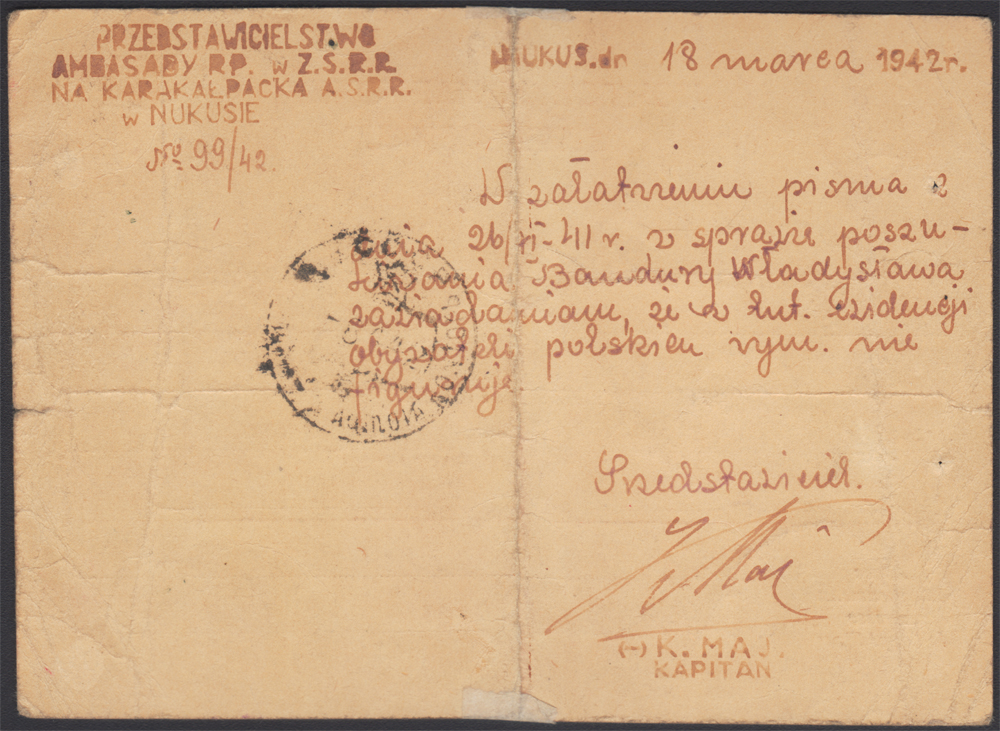 PRZEDSTAWICIELSTWO
AMBASADY RP. w Z.S.R.R.
NA KARAKAŁPACKA A.S.R.R.
w NUKUSIE
No 99/42.
NUKUS. dn 18 marca 1942 r.
W załatwieniu pisma z
dnia 26/VI-41 r. w sprawie poszu-
kiwania Bandury Władysława
zawiadamiam, że w tut. ewidencji
obywateli polskich wym. nie
figuruje.
Przedstawiciel.
(-) K. MAJ.
KAPITAN